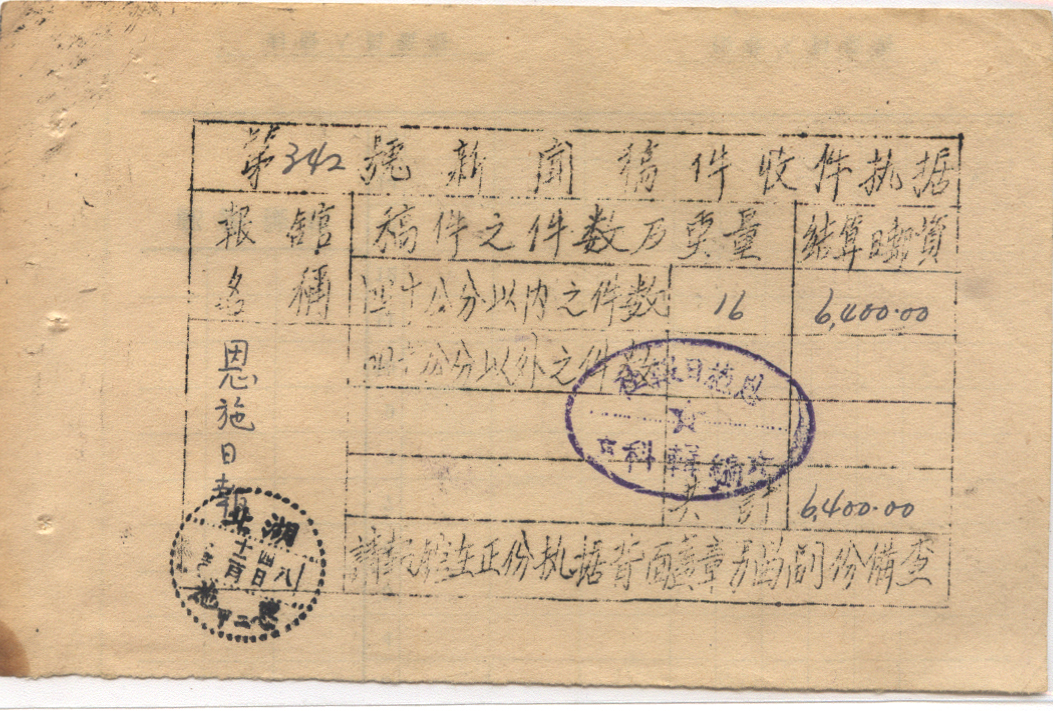 第342號新聞稿件收件执据
報館名稱
稿件之件数及重量
结算郵資
四十公分以内之件数
16
6,400.00
四十公分以外之件数
恩施日報
恩施日報社
編輯科
共計
6,400.00
請報館在正份执据背面蓋章另留副份備查
湖北
恩施